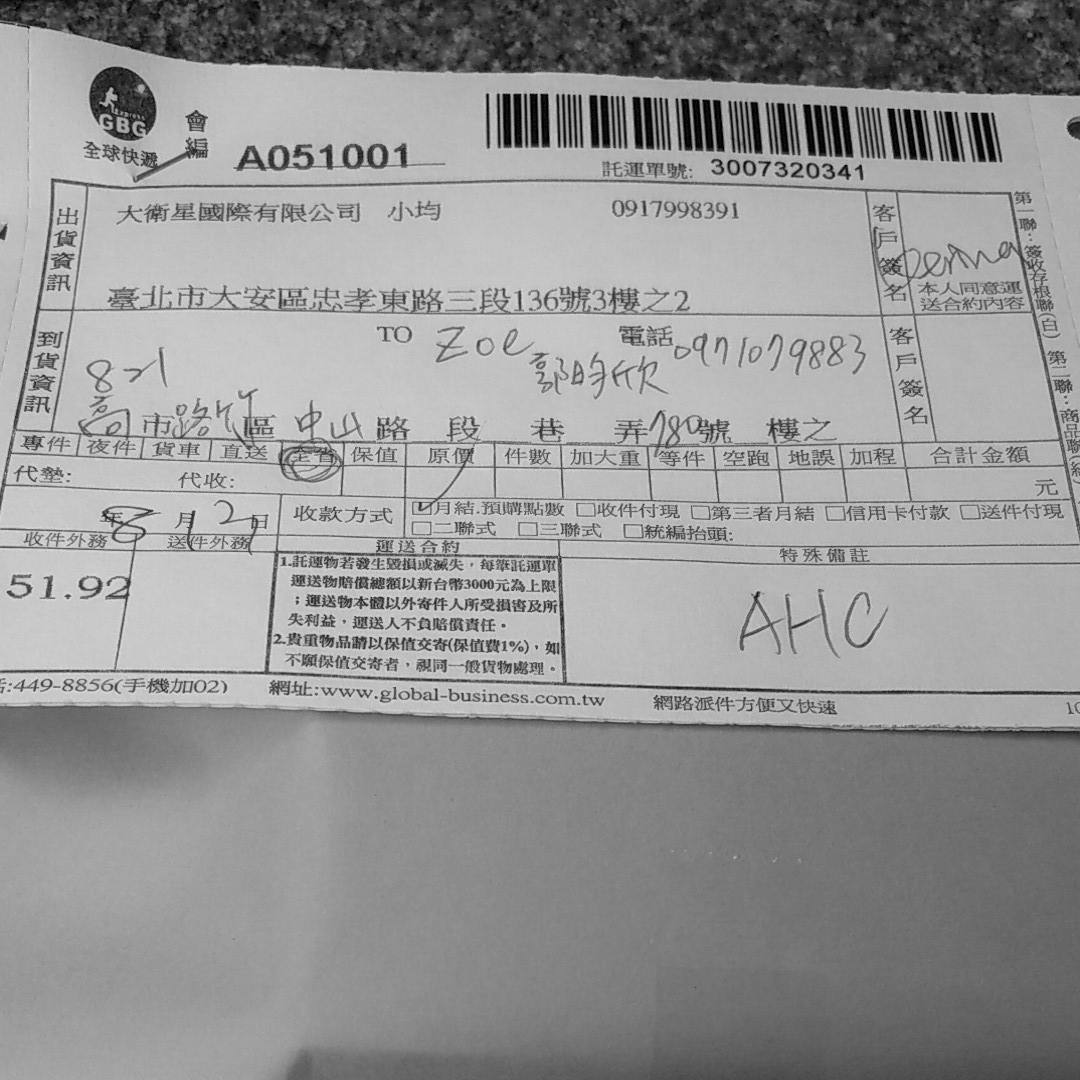 EXPRESS
GBG
全球快遞
會編 A051001
託運單號: 3007320341
出貨資訊
大衛星國際有限公司 小均 0917998391
臺北市大安區忠孝東路三段136號3樓之2
客戶簽名
本人同意運送合約內容
到貨資訊
TO Zoe 電話 0971079883
821
高市路竹區 中山路 段 巷 弄780號 樓之
客戶簽名
專件 夜件 貨車 直送 全省 保值 原價 件數 加大重 等件 空跑 地誤 加程 合計金額
代墊: 代收: 元
年8月12日
收款方式 ☑月結.預購點數 □收件付現 □第三者月結 □信用卡付款 □送件付現
□二聯式 □三聯式 □統編抬頭:
收件外務 送件外務 運送合約 特殊備註
51.92
1.託運物若發生毀損或滅失，每筆託運單
運送物賠償總額以新台幣3000元為上限
；運送物本體以外寄件人所受損害及所
失利益，運送人不負賠償責任。
2.貴重物品請以保值交寄(保值費1%)，如
不願保值交寄者，視同一般貨物處理。
AHC
:449-8856(手機加02) 網址:www.global-business.com.tw 網路派件方便又快速
第一聯:簽收存根聯(白) 第二聯:商品聯(紅)